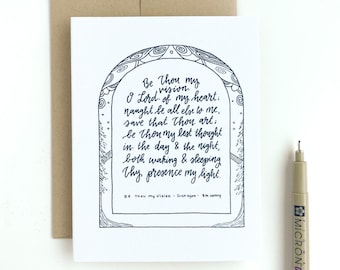 Be Thou my
vision
O Lord of my heart;
naught be all else to me,
save that thou art,
be thou my best thought
in the day & the night,
both waking & sleeping
thy presence my light.
Be Thou My Vision
MICRON